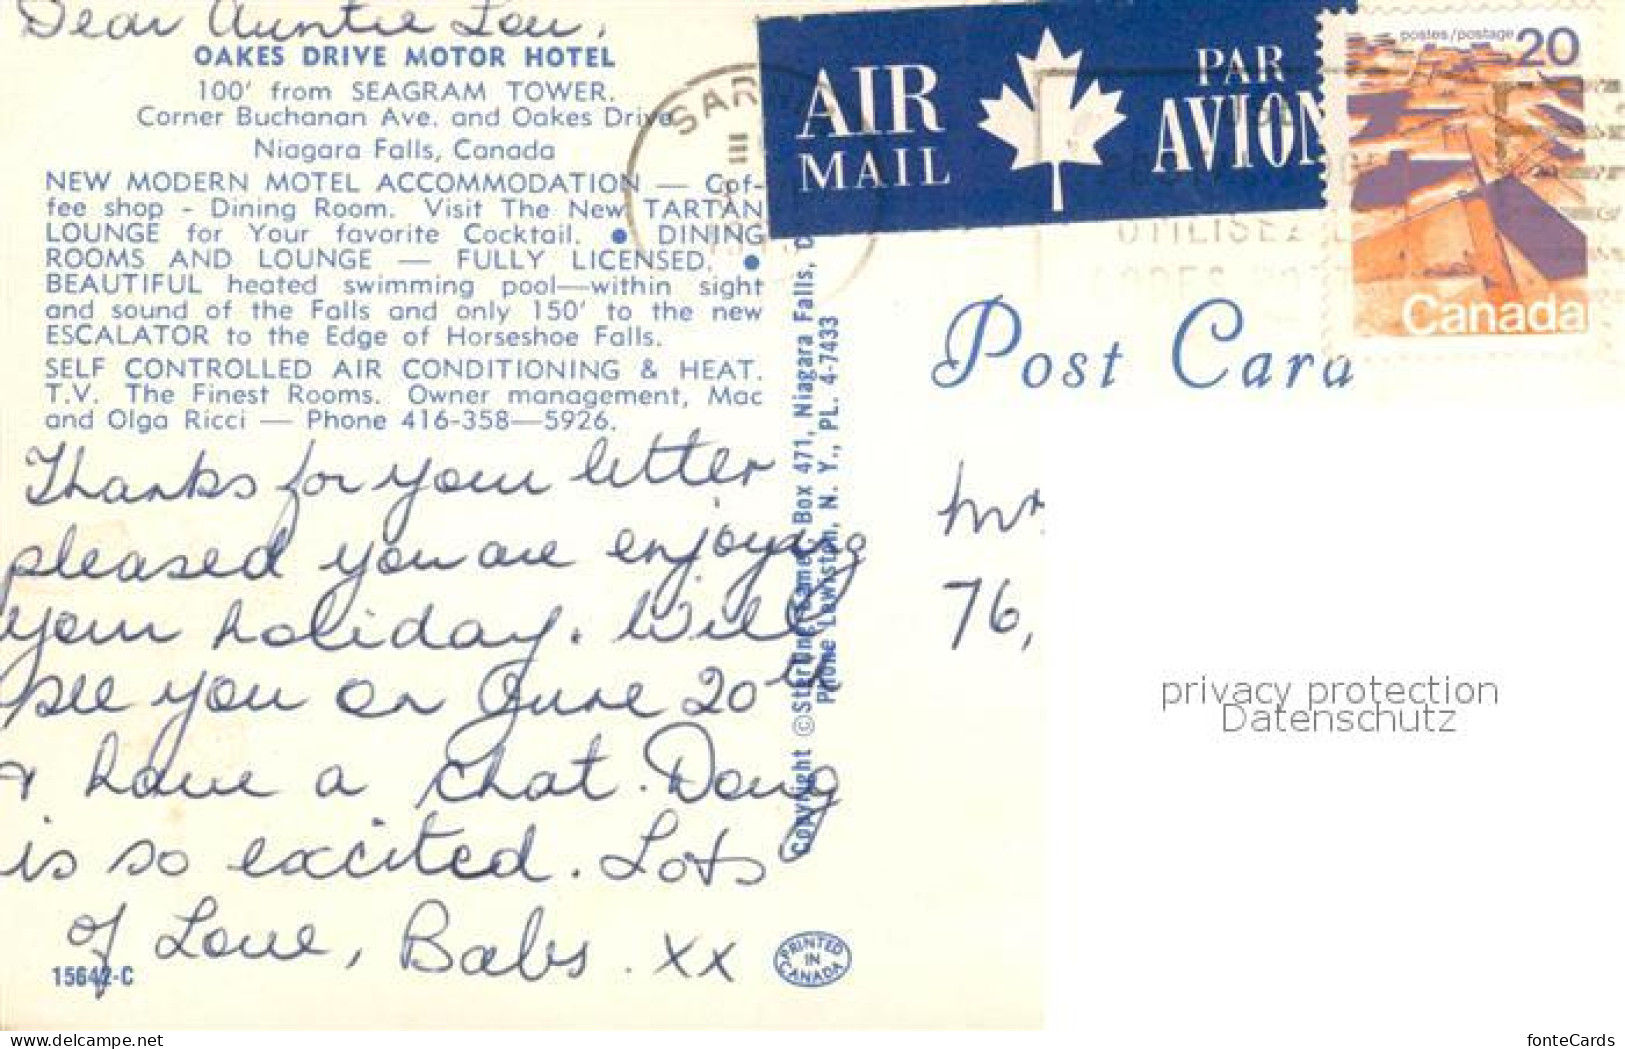 Dear Auntie Lou,
OAKES DRIVE MOTOR HOTEL
100' from SEAGRAM TOWER.
Corner Buchanan Ave. and Oakes Drive
Niagara Falls, Canada
NEW MODERN MOTEL ACCOMMODATION — Cof-
fee shop - Dining Room. Visit The New TARTAN
LOUNGE for Your favorite Cocktail. ● DINING
ROOMS AND LOUNGE — FULLY LICENSED. ●
BEAUTIFUL heated swimming pool—within sight
and sound of the Falls and only 150' to the new
ESCALATOR to the Edge of Horseshoe Falls.
SELF CONTROLLED AIR CONDITIONING & HEAT.
T.V. The Finest Rooms. Owner management, Mac
and Olga Ricci — Phone 416-358—5926.
Thanks for your letter
pleased you are enjoying
your holiday. Will
see you on June 20th
& have a chat. Doug
is so excited. Lots
of Love, Babs. xx
15642-C
PRINTED
IN
CANADA
Copyright © Box 471, Niagara Falls,
Phone Lewiston, N. Y., PL. 4-7433
SAR
AIR
MAIL
PAR
AVION
UTILISEZ
postes/postage 20
Canada
Post Card
Mr
76,
privacy protection
Datenschutz
www.delcampe.net
fonteCards